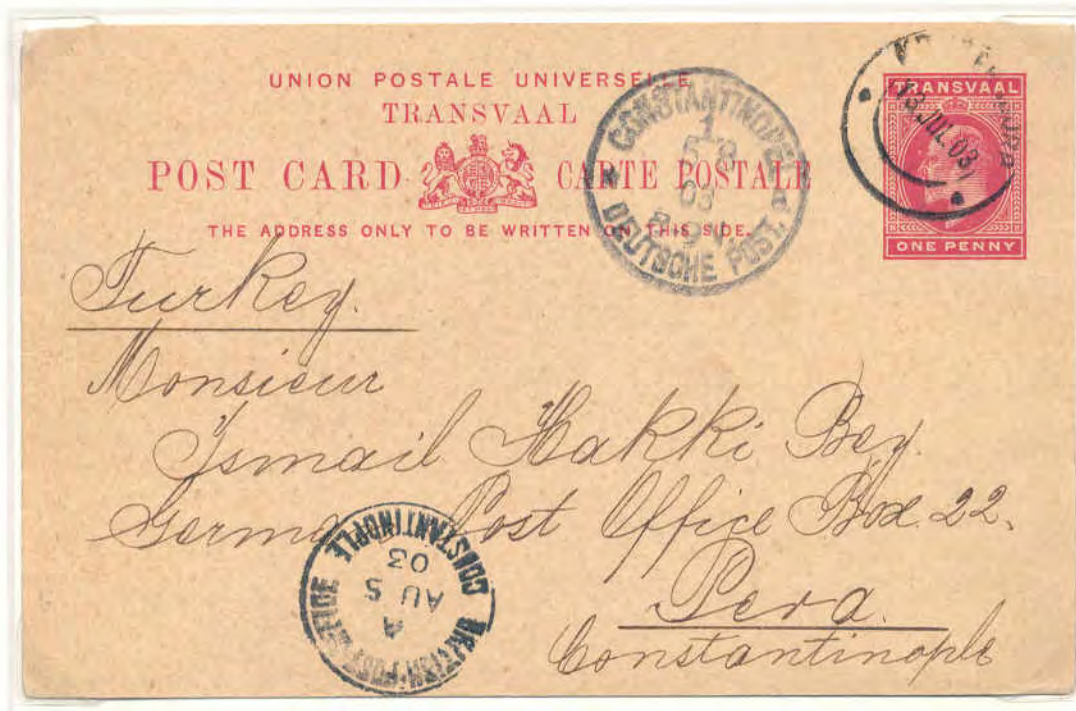 UNION POSTALE UNIVERSELLE
TRANSVAAL
POST CARD CARTE POSTALE
THE ADDRESS ONLY TO BE WRITTEN ON THIS SIDE.
TRANSVAAL
ONE PENNY
13 JUL 03
CONSTANTINOPEL 1
5 8
03
DEUTSCHE POST.
Turkey.
Monsieur
Ismail Hakki Bey.
German Post Office Box 22.
Pera.
Constantinople
BRITISH POST OFFICE
CONSTANTINOPLE
A
AU 5
03